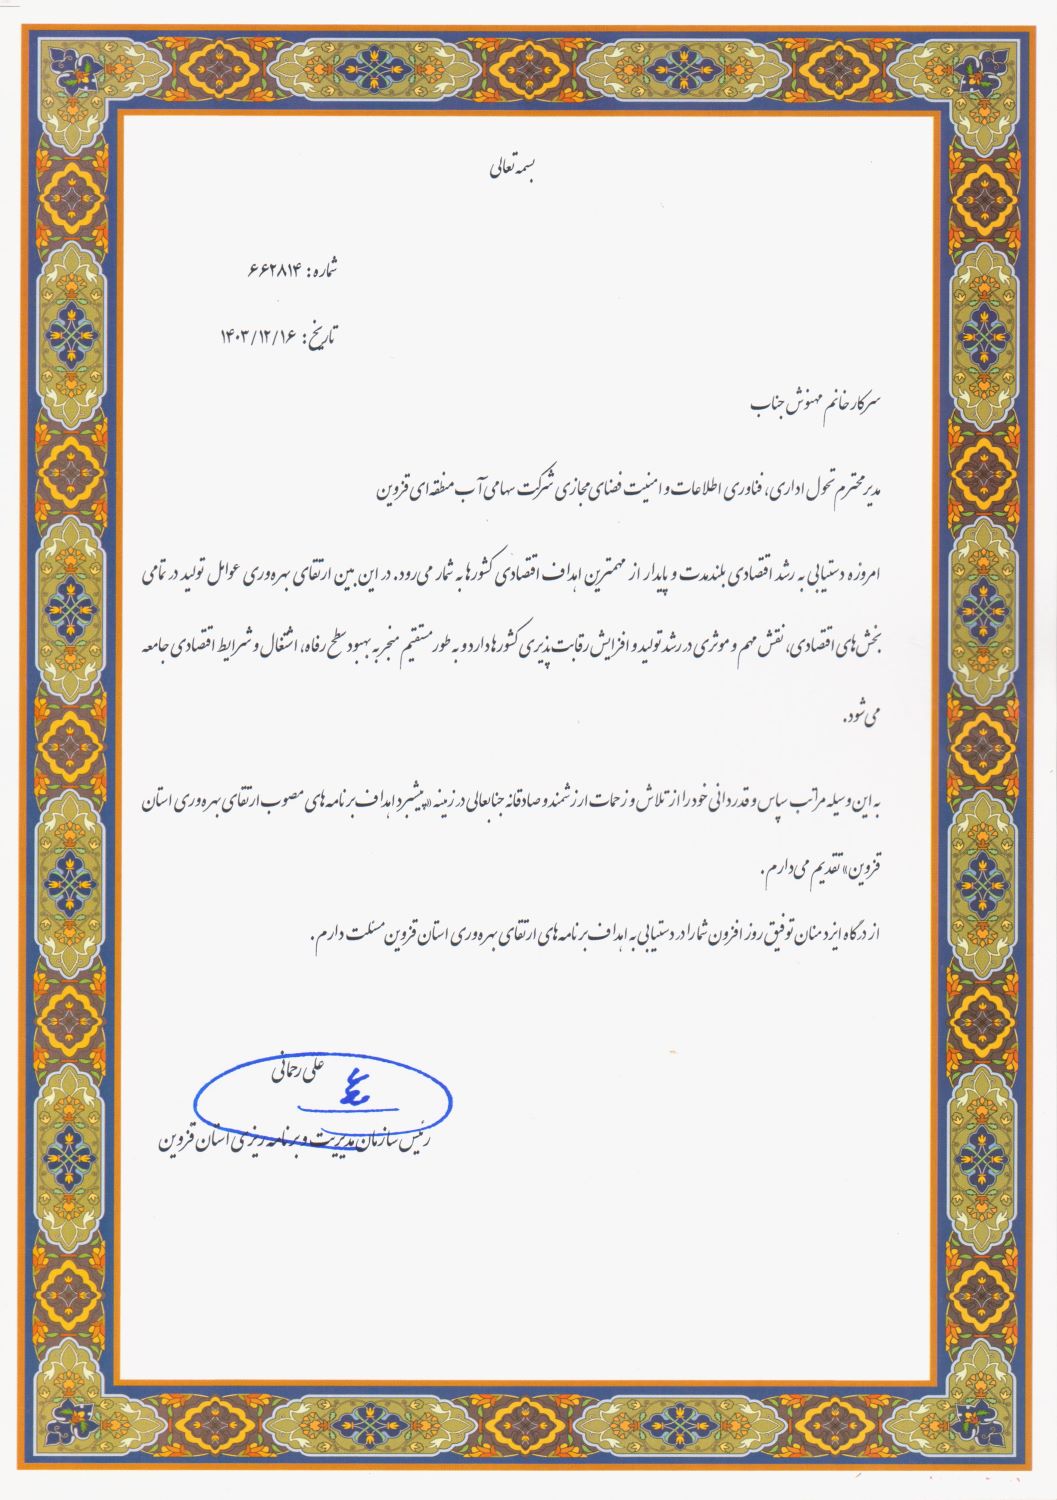 بسمه تعالی
شماره: ۶۶۲۸۱۴
تاریخ: ۱۴۰۳/۱۲/۱۶
سرکار خانم مهنوش جناب
مدیر محترم تحول اداری، فناوری اطلاعات و امنیت فضای مجازی شرکت سهامی آب منطقه ای قزوین
امروزه دستیابی به رشد اقتصادی بلندمدت و پایدار از مهمترین اهداف اقتصادی کشورها به شمار می‌رود. در این بین ارتقای بهره‌وری عوامل تولید در تمامی
بخش‌های اقتصادی، نقش مهم و موثری در رشد تولید و افزایش رقابت پذیری کشورها دارد و به طور مستقیم منجر به بهبود سطح رفاه، اشتغال و شرایط اقتصادی جامعه
می‌شود.
به این وسیله مراتب سپاس و قدردانی خود را از تلاش و زحمات ارزشمند و صادقانه جنابعالی در زمینه «پیشبرد اهداف برنامه‌های مصوب ارتقای بهره‌وری استان
قزوین» تقدیم می‌دارم.
از درگاه ایزد منان توفیق روز افزون شما را در دستیابی به اهداف برنامه‌های ارتقای بهره‌وری استان قزوین مسئلت دارم.
علی رحمانی
رئیس سازمان مدیریت و برنامه‌ریزی استان قزوین